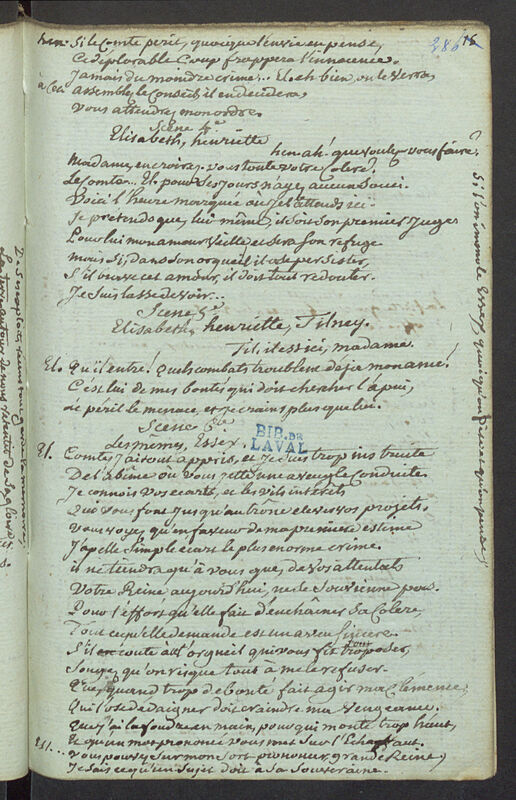 286 15
hen. Si le Comte perit, quoique l'envie en pense,
Ce déplorable Coup frappera l'innocence.
Jamais du moindre crime... El. eh bien, on le verra,
assemblés le Conseil, il en decidera,
vous attendrez mon ordre.
Scene 4e
Elisabeth, henriette
hen. ah! que voulez-vous faire?
Madame, en croirez-vous toute votre Colere?
Le Comte... El. pour ses jours n'ayez aucun Souci.
Voici l'heure marquée où je l'attends ici.
Je pretends que, lui même, il soit son premier juge;
Pour lui mon amour veille et sera son refuge
mais Si, dans son orgueil il ose persister,
S'il brave cet amour, il doit tout redouter.
Je suis lasse de voir...
Scene 5e
Elisabeth, henriette, Tilney.
Til. il est ici, madame
El. Qu'il entre! Quels combats troublent déja mon ame!
C'est lui de mes bontés qui doit chercher l'apui,
le péril le menace, et je crains plus que lui.
Scene 6e
Les mêmes, Essex.
BIB. DE
LAVAL
El. Comte, J'ai tout appris, et je suis trop instruite
De l'abîme où vous jette une aveugle Conduite
Je connois vos ecarts, et les vils interêts
Qui vous font jusqu'au trone elever vos projets.
Vous voyez qu'en faveur de ma premiere estime
J'apelle Simple ecart le plus enorme crime.
il ne tiendra qu'à vous que, de vos attentats
Votre Reine aujourd'hui, ne se souvienne pas.
Pour l'effort qu'elle fait d'enchaîner Sa Colere,
Tout ce qu'elle demande est un aveu Sincere.
S'il en coute à l'orgueil qui vous fit trop oser,
Songez qu'on risque tout à me le refuser.
Que, quand trop de bonté fait agir ma Clémence,
Qui l'ose dédaigner doit craindre ma Vengeance.
Que j'ai la foudre en main, pour qui monte trop haut,
Et qu'un mot prononcé vous met sur l'Echaffaut.
Ess... vous pouvez sur mon Sort prononcer, grande Reine,
Je sais ce qu'un Sujet doit à Sa Souveraine.
Si l'on immole Essex, quoi qu'on dise et qu'on pense,
De ses exploits, tous garde la memoire,
La terre autour de nous retentit de Sa gloire.